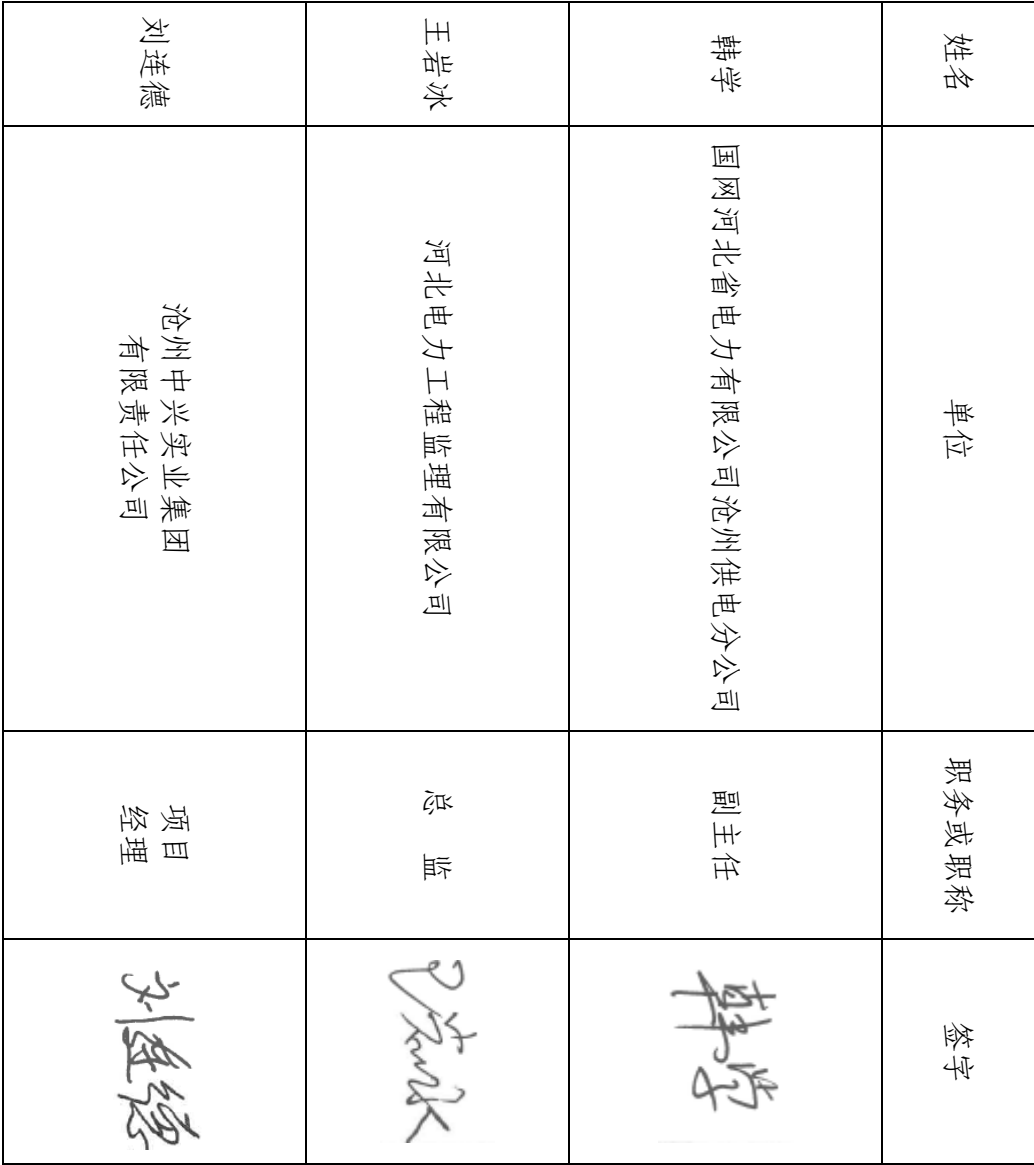 姓名
单位
职务或职称
签字
韩学
国网河北省电力有限公司沧州供电分公司
副主任
韩学
王岩冰
河北电力工程监理有限公司
总 监
王岩冰
刘连德
沧州中兴实业集团
有限责任公司
项目
经理
刘连德